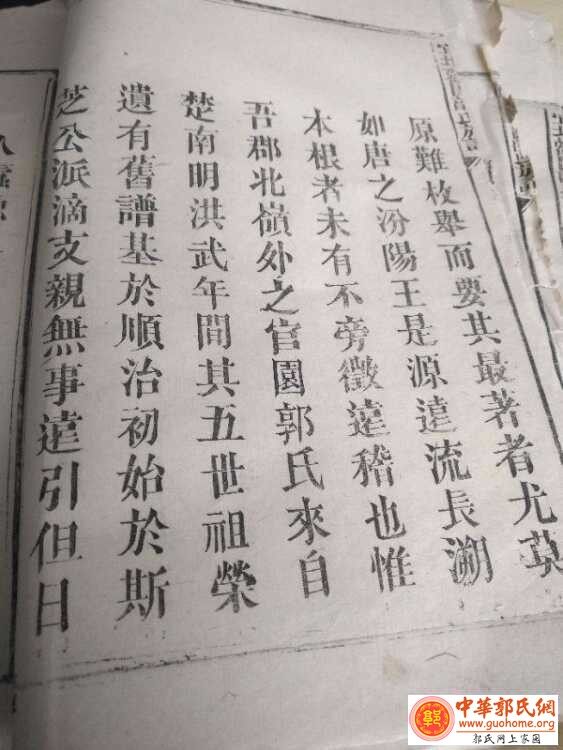 原難枚舉而要其最著者尤莫
如唐之汾陽王是源遠流長溯
本根者未有不旁徵遠稽也惟
吾郡北嶺外之官園郭氏來自
楚南明洪武年間其五世祖榮
遺有舊譜基於順治初始於斯
芝公派滴支親無事遠引但日
中華郭氏網
www.guohome.org
郭氏网上家园